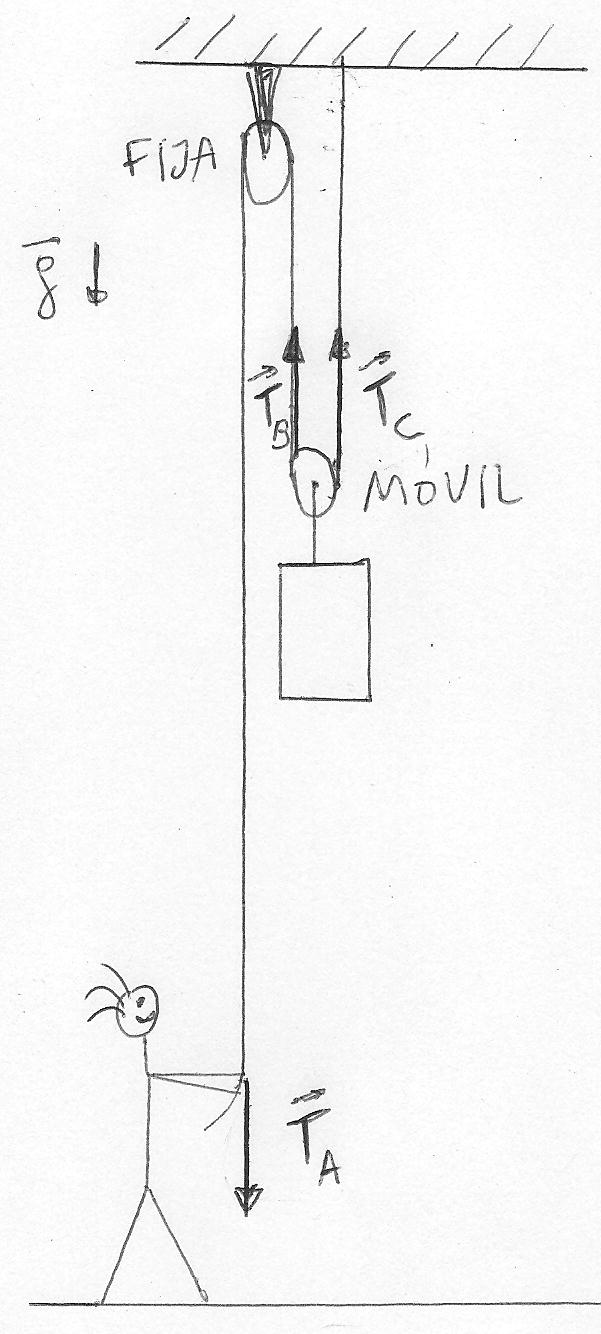 FIJA
g
T_B
T_C
MÓVIL
T_A